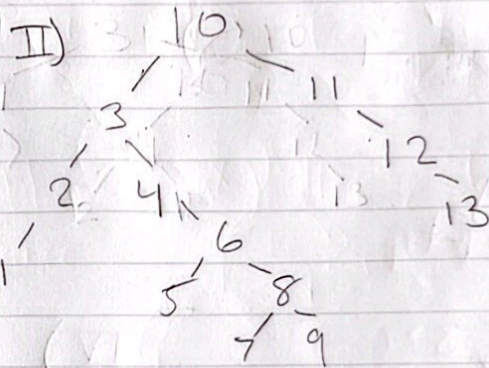 II) 10
3 11
2 4 12
1 6 13
5 8
7 9